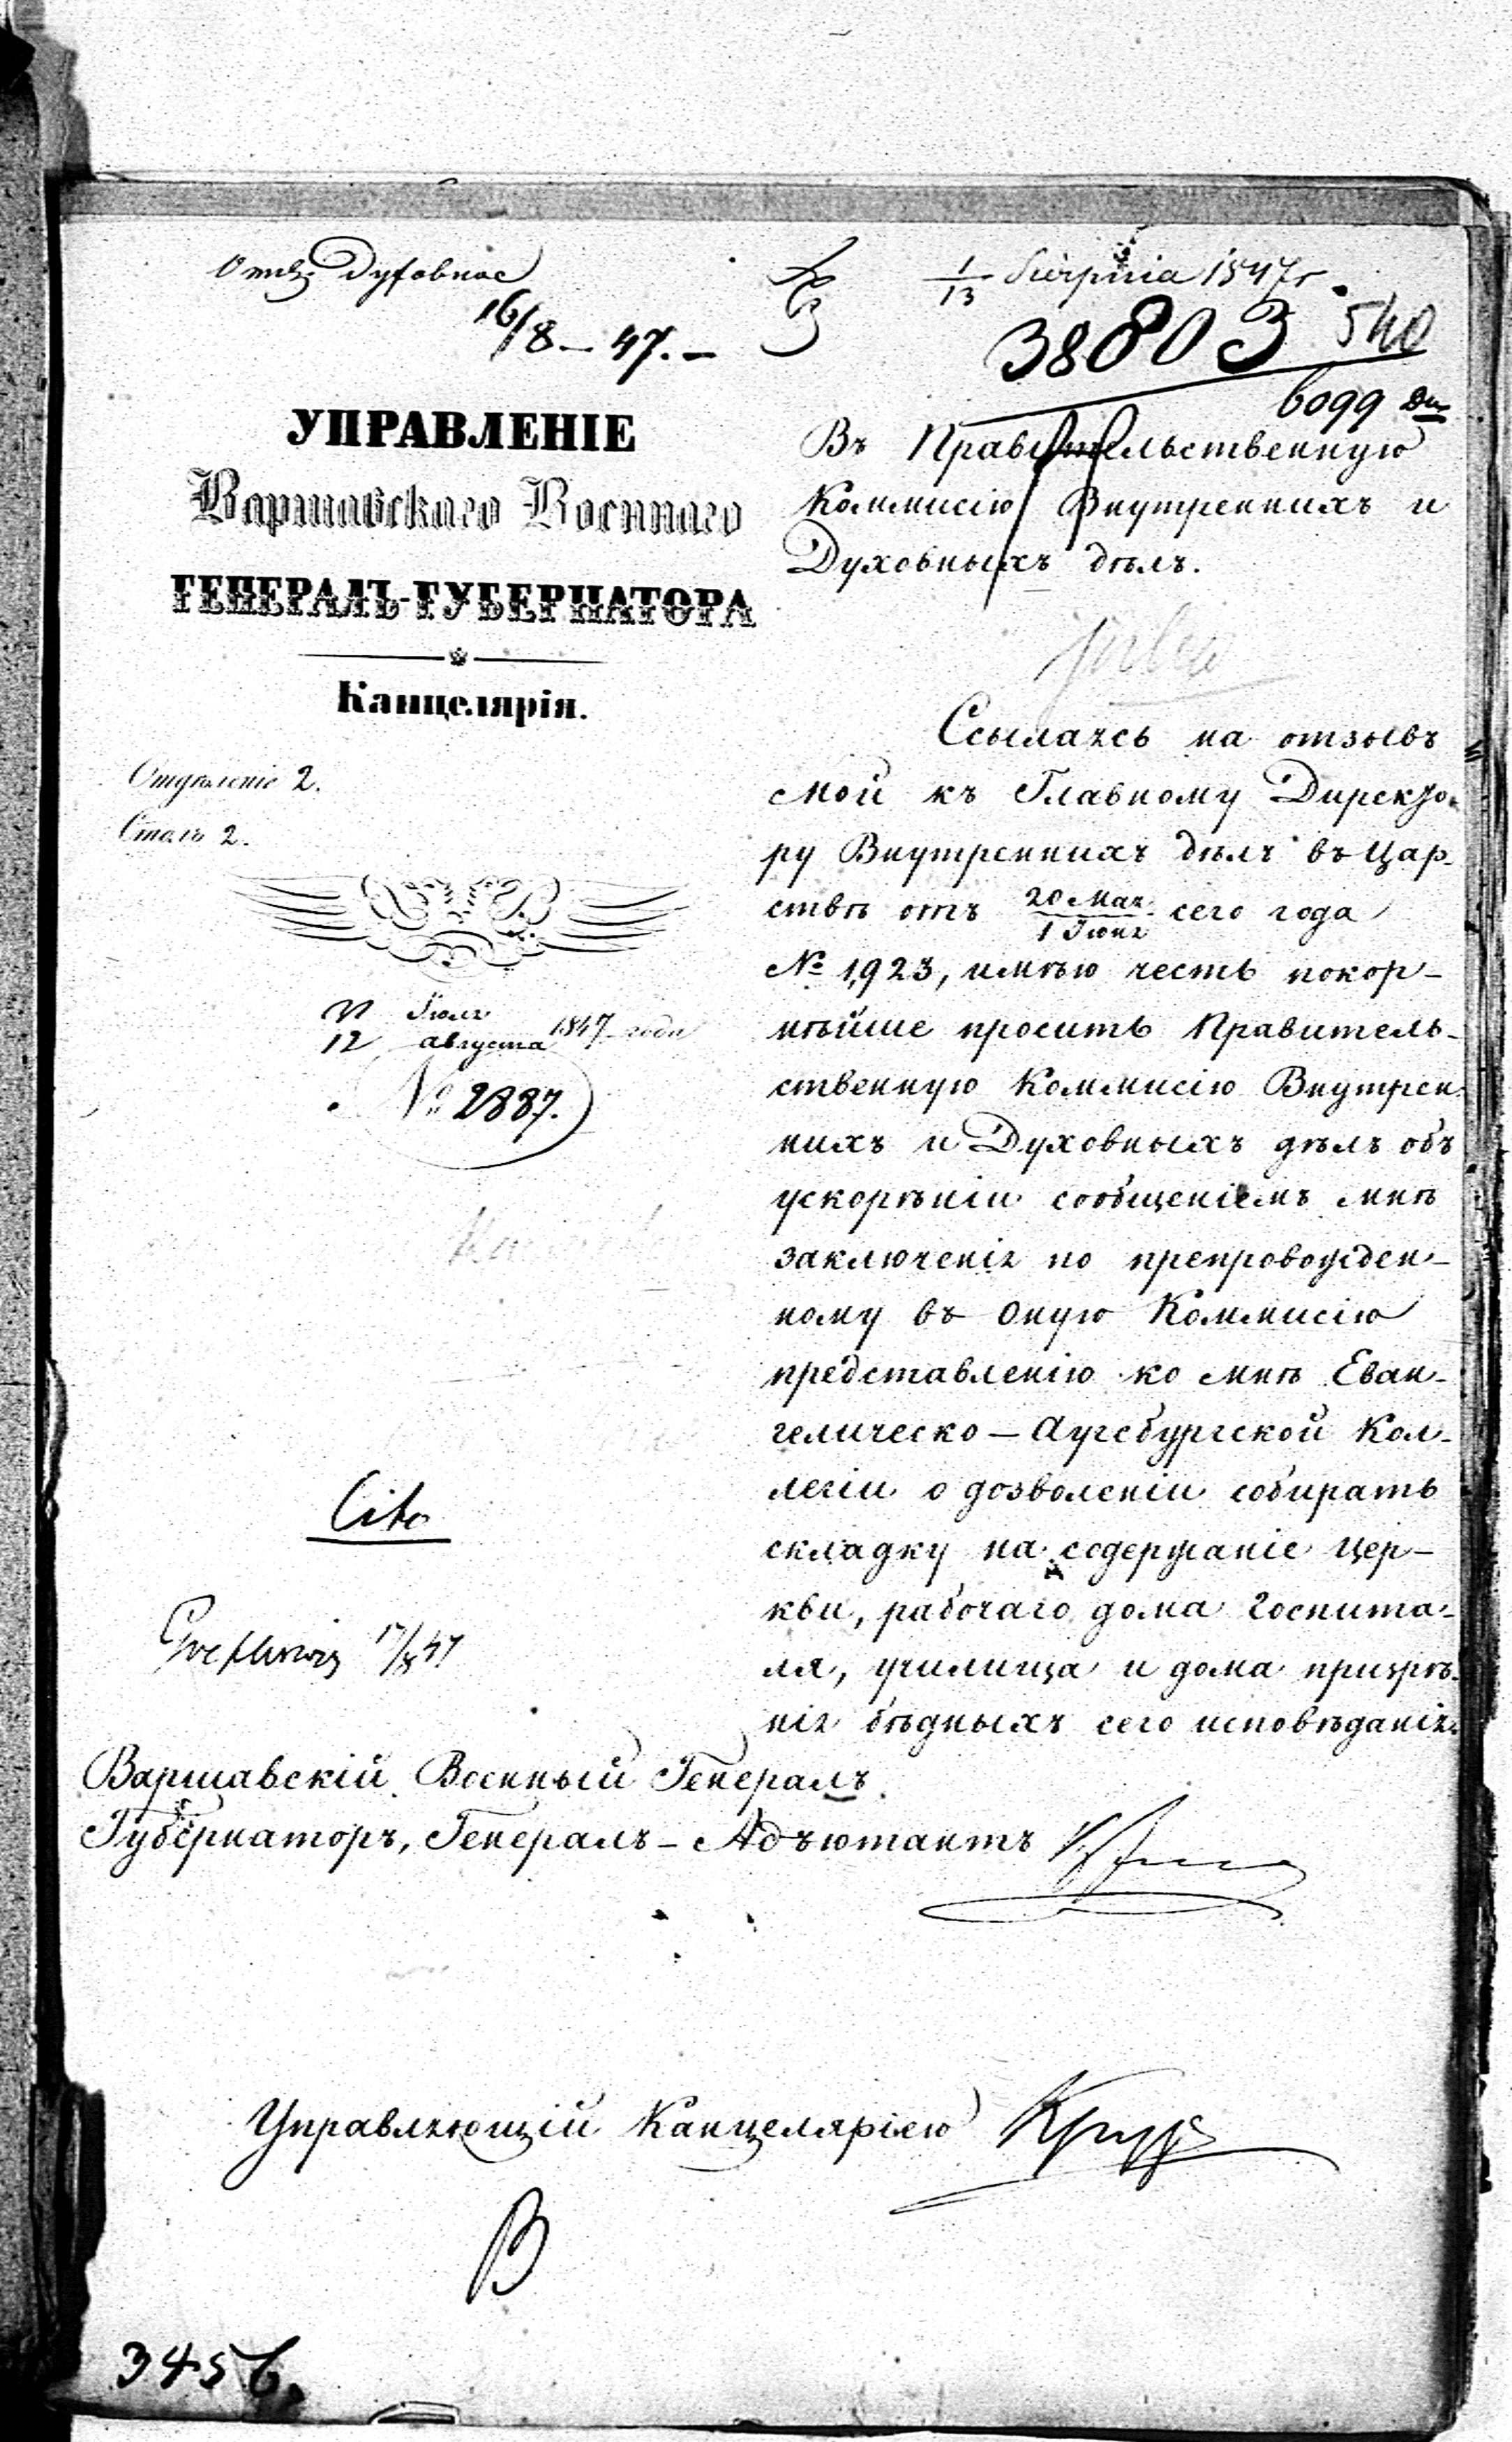 Отд. Духовное
16/8 – 47. –
1/13 Sierpnia 1847 r.
38803 540
6099
УПРАВЛЕНІЕ
Варшавскаго Военнаго
ГЕНЕРАЛЪ-ГУБЕРНАТОРА
Канцелярія.
Отдѣленіе 2.
Столъ 2.
Іюля
12 августа 1847 года
№ 2887.
Cito
17/8 47
Въ Правительственную
Коммисію Внутреннихъ и
Духовныхъ дѣлъ.
Ссылаясь на отзывъ
мой къ Главному Директо-
ру Внутреннихъ дѣлъ въ Цар-
ствѣ отъ 20 Мая / 1 Іюня сего года
№ 1,923, имѣю честь покор-
нѣйше просить Правитель-
ственную Коммисію Внутрен-
нихъ и Духовныхъ дѣлъ объ
ускорѣніи сообщеніемъ мнѣ
заключенія по препровожден-
ному въ оную Коммисію
представленію ко мнѣ Еван-
гелическо – Аугсбургской Кол-
легіи о дозволеніи собирать
складку на содержаніе Цер-
кви, рабочаго дома Госпита-
ля, училища и дома призрѣ-
нія бѣдныхъ сего исповѣданія.
Варшавскій Военный Генералъ
Губернаторъ, Генералъ – Адъютантъ
Управляющій Канцеляріею
B
3456.